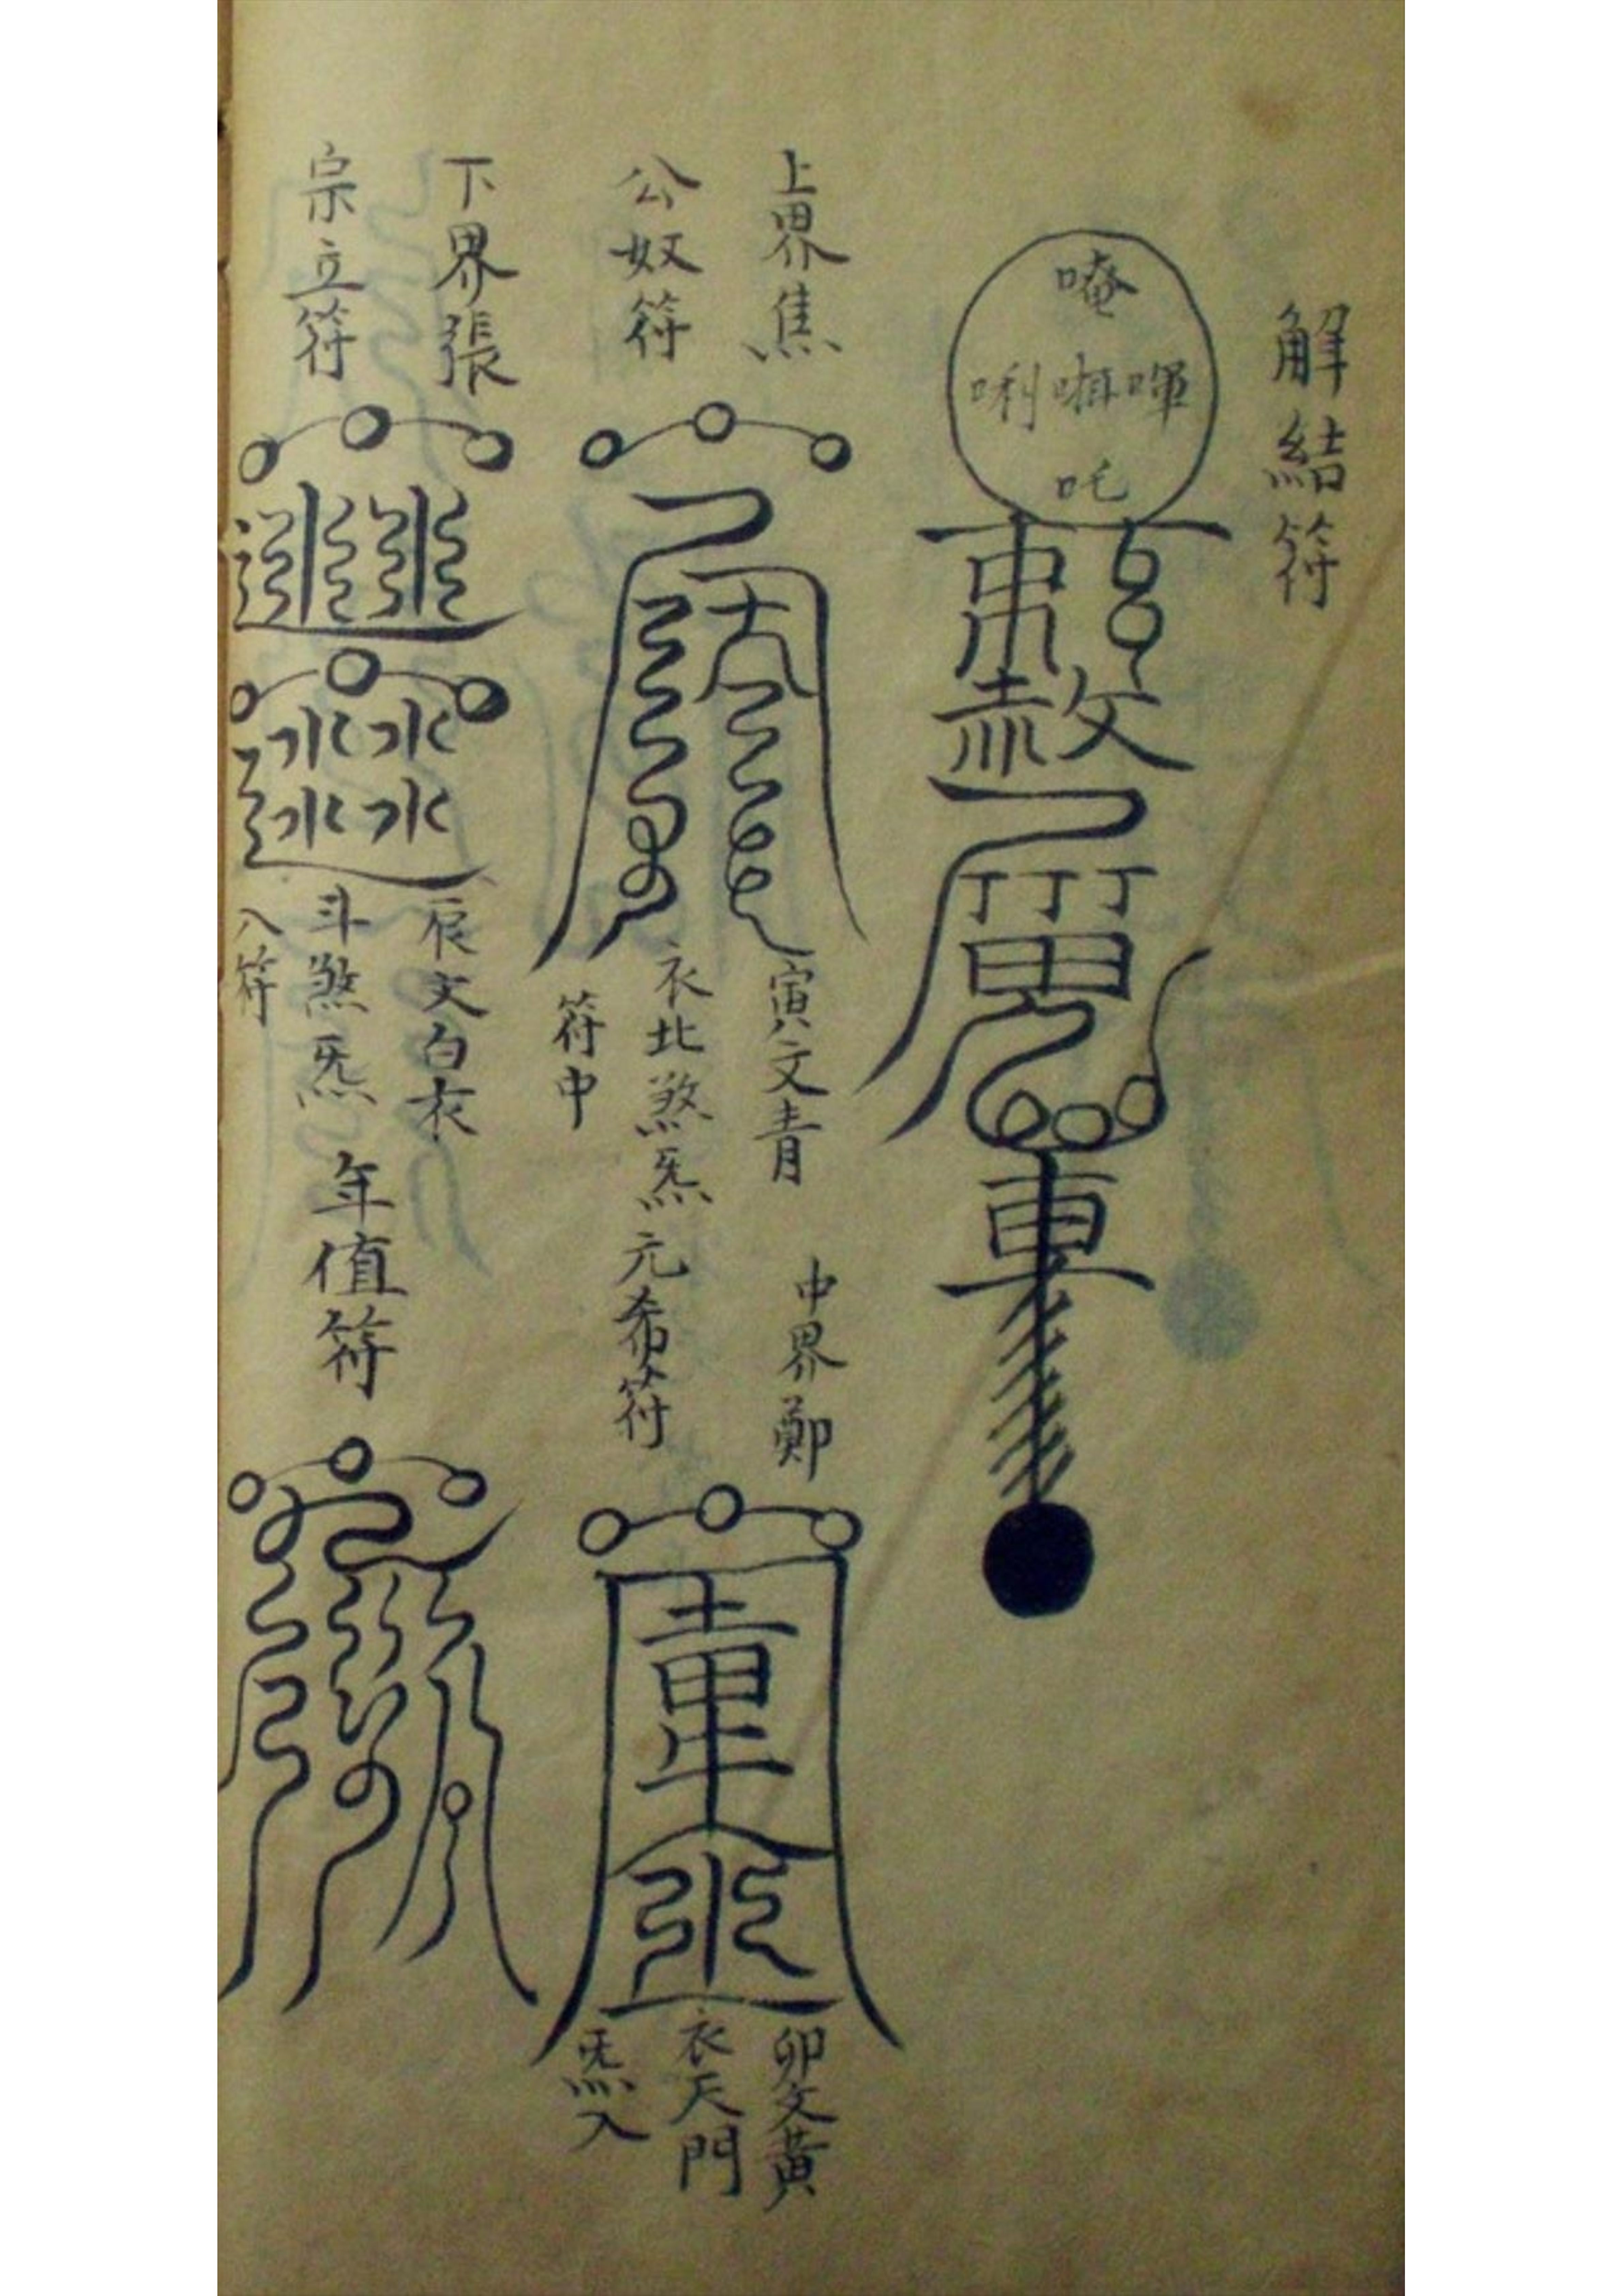 解結符
唵
唎囀㖷
吒
上界焦
公奴符
寅文青
衣北煞炁
符中
中界鄭
元希符
卯文黃
衣天門
炁入
下界張
宗立符
辰文白衣
斗煞炁
入符
年值符